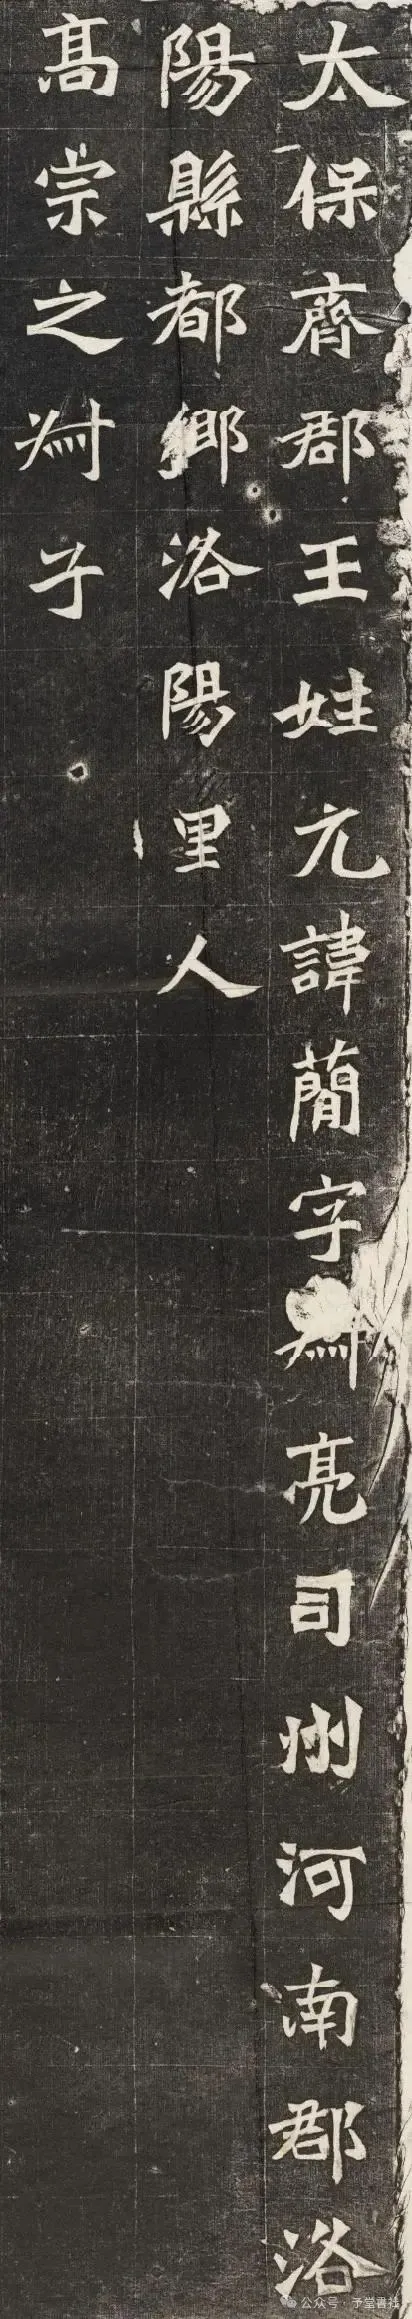 太保齊郡王姓元諱蕳字叔亮司州河南郡洛
陽縣都鄉洛陽里人
髙宗之叔子
公众号 · 予堂書社